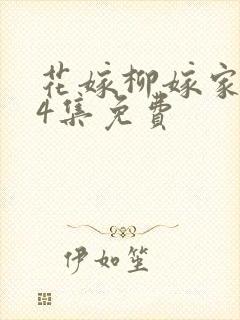 花嫁柳嫁家
4集免费
伊如笙